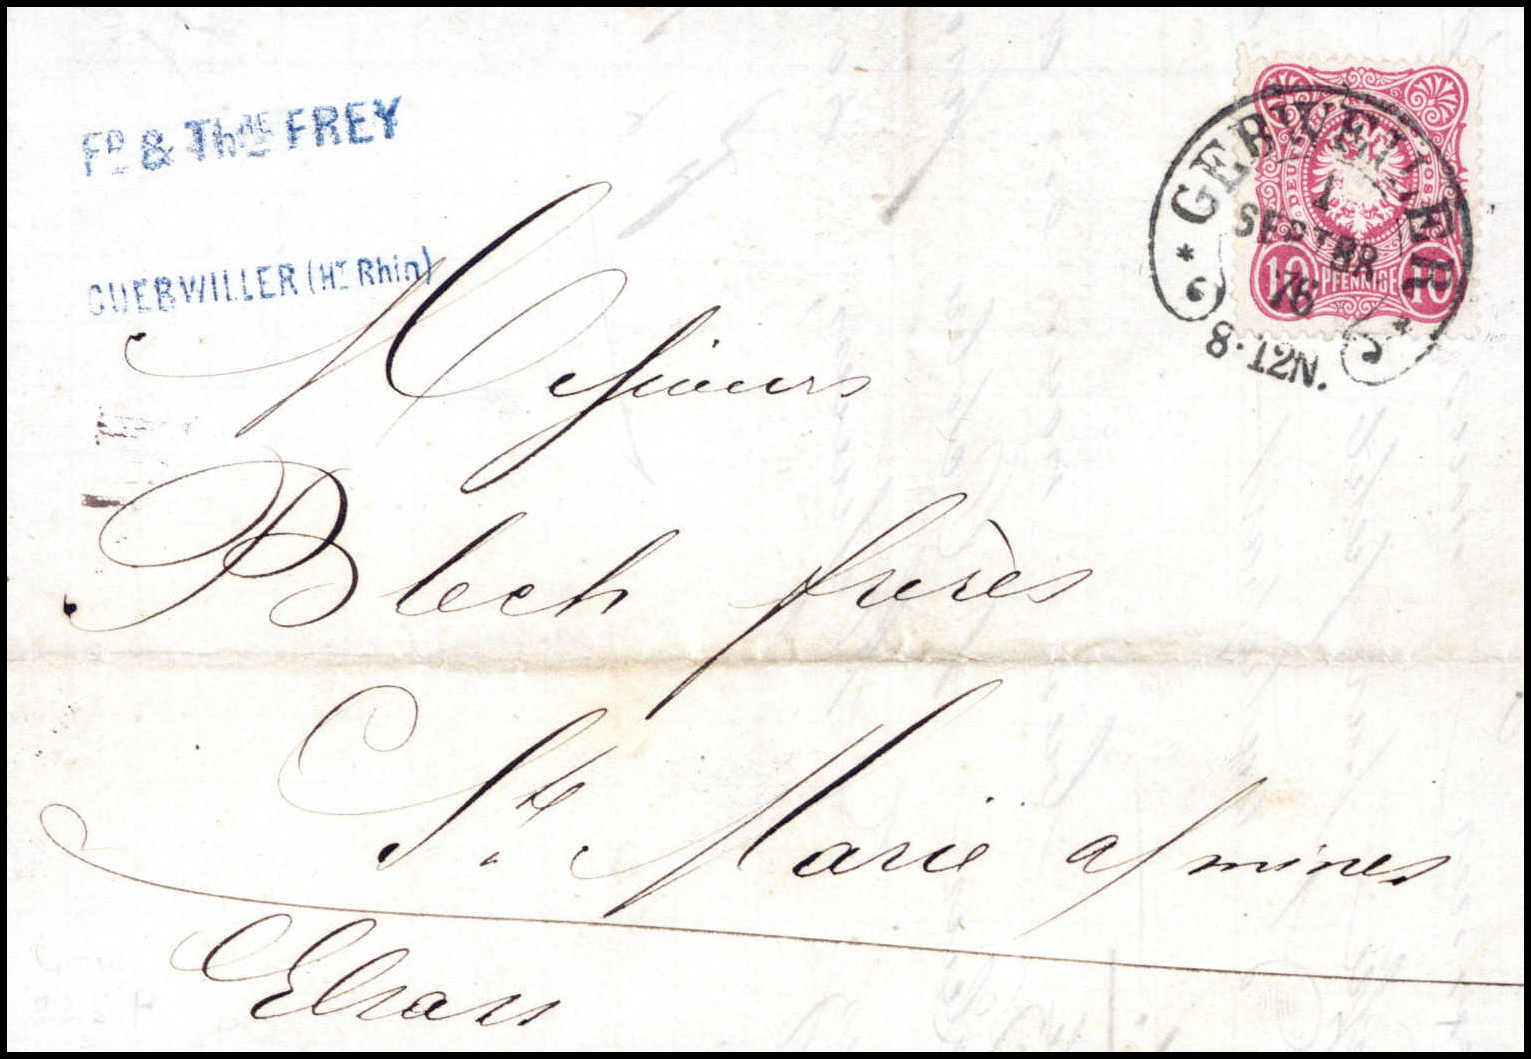 FD & Thdé FREY
GUEBWILLER (HT Rhin)
DEUTSCHE REICHSPOST
10 PFENNIGE 10
* GEBWEILER *
1
SEPTBR
76
8-12N.
Messieurs
Blech frères
Ste. Marie a/mines
Elsass